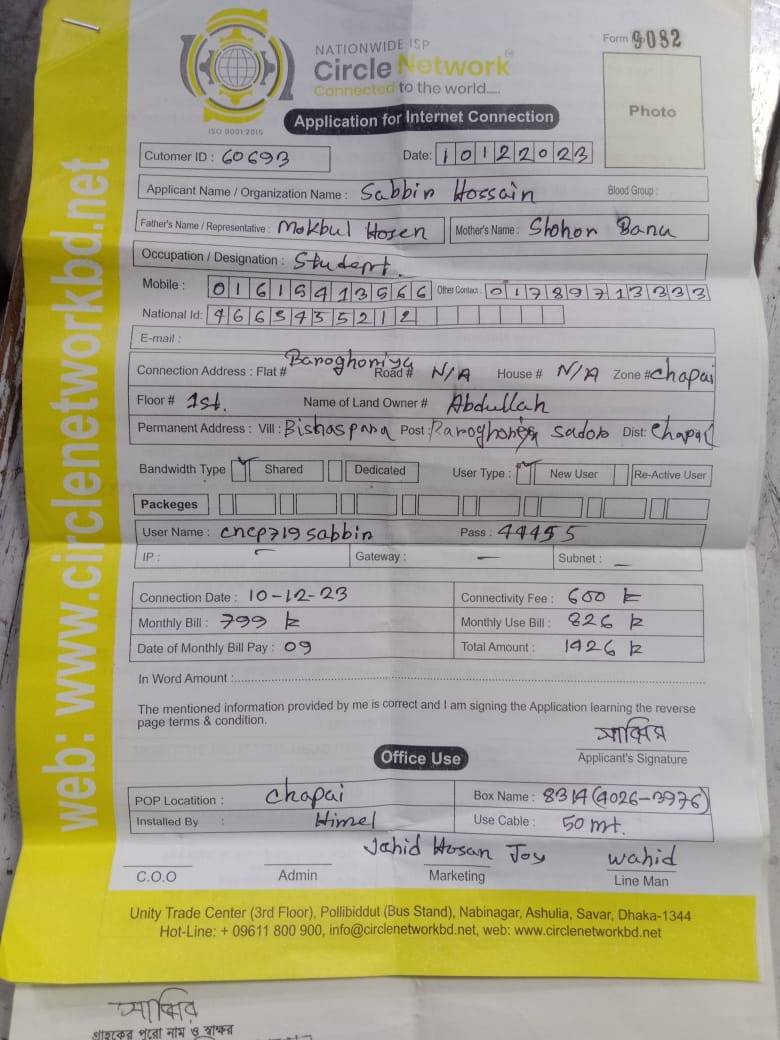 NATIONWIDE ISP
Circle Network
Connected to the world.....
ISO 9001:2015
Form 9082
Photo
Application for Internet Connection
Cutomer ID : 60693 Date: 10122023
Applicant Name / Organization Name : Sabbin Hossain Blood Group :
Father's Name / Representative : Mokbul Hosen Mother's Name : Shohon Banu
Occupation / Designation : Student.
Mobile : 01615413566 Other Contact : 01789713333
National Id: 4665435212
E-mail :
Connection Address : Flat # Baroghoniya Road # N/A House # N/A Zone # Chapai
Floor # 1st. Name of Land Owner # Abdullah
Permanent Address : Vill : Bishaspara Post : Sador Dist: Chapai
Bandwidth Type Shared Dedicated User Type : New User Re-Active User
Packeges
User Name : cncp719sabbin Pass : 44455
IP : - Gateway : - Subnet : -
Connection Date : 10-12-23 Connectivity Fee : 600 k
Monthly Bill : 799 k Monthly Use Bill : 826 k
Date of Monthly Bill Pay : 09 Total Amount : 1426 k
In Word Amount :
The mentioned information provided by me is correct and I am signing the Application learning the reverse
page terms & condition.
সাব্বির
Applicant's Signature
Office Use
POP Locatition : Chapai Box Name : 8314(4026-3976)
Installed By : Himel Use Cable : 50 mt.
Jahid Hosan Joy wahid
C.O.O Admin Marketing Line Man
Unity Trade Center (3rd Floor), Pollibiddut (Bus Stand), Nabinagar, Ashulia, Savar, Dhaka-1344
Hot-Line: + 09611 800 900, info@circlenetworkbd.net, web: www.circlenetworkbd.net
web: www.circlenetworkbd.net
সাব্বির
গ্রাহকের পুরো নাম ও স্বাক্ষর